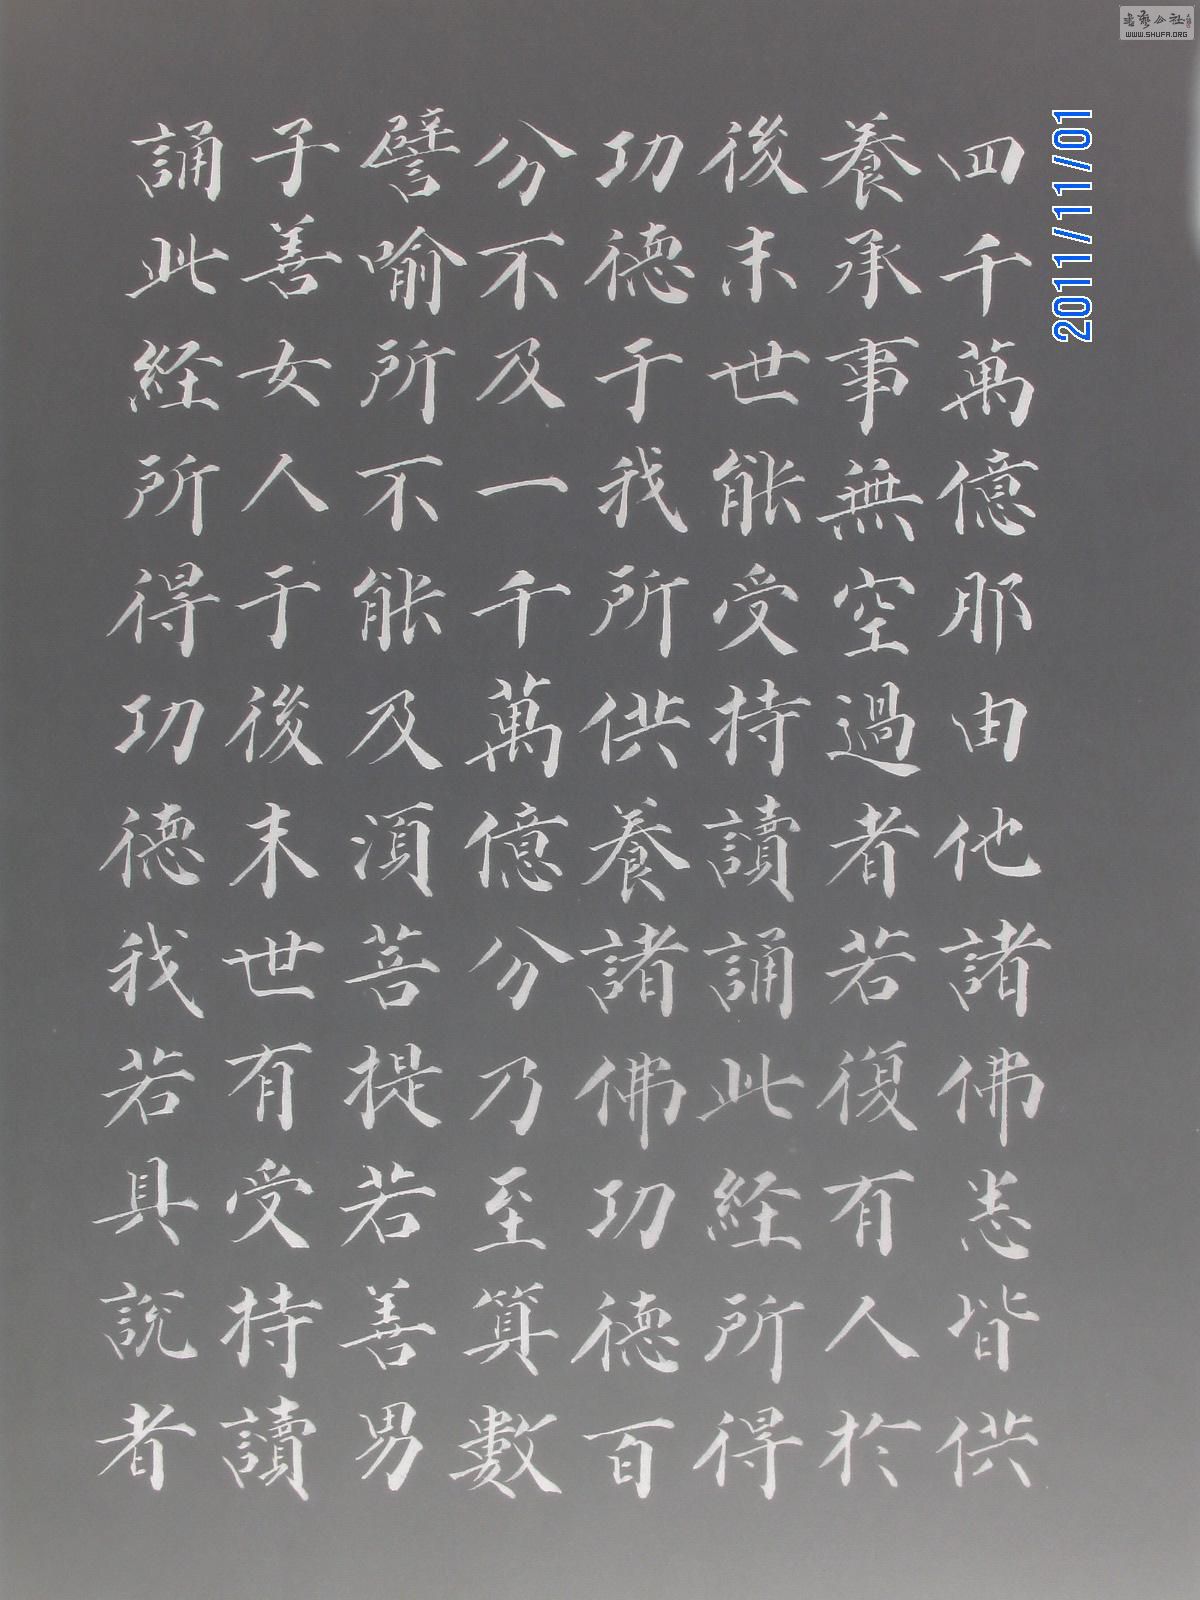 四千萬億那由他諸佛悉皆供
養承事無空過者若復有人於
後末世能受持讀誦此経所得
功德于我所供養諸佛功德百
分不及一千萬億分乃至算數
譬喻所不能及須菩提若善男
子善女人于後末世有受持讀
誦此経所得功德我若具説者
2011/11/01
书艺公社
WWW.SHUFA.ORG